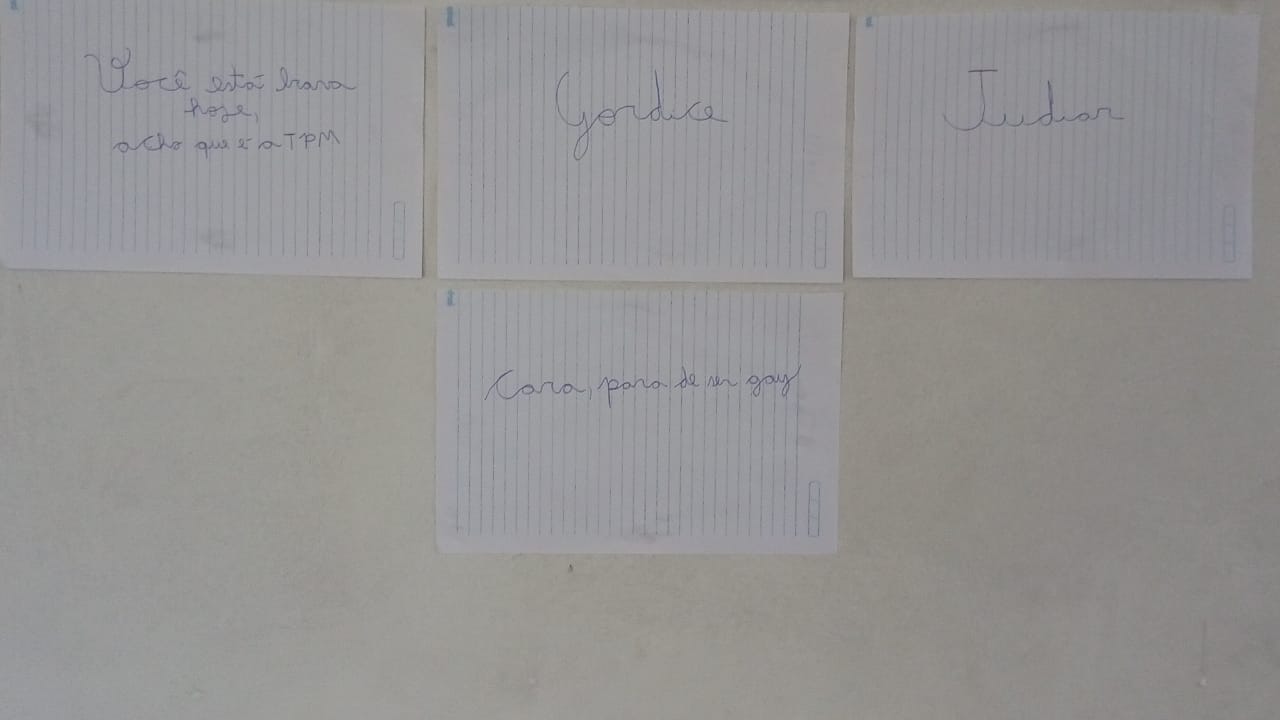 Você está brava
hoje,
acho que é a TPM
Gordice
Judiar
Cara, para de ser gay